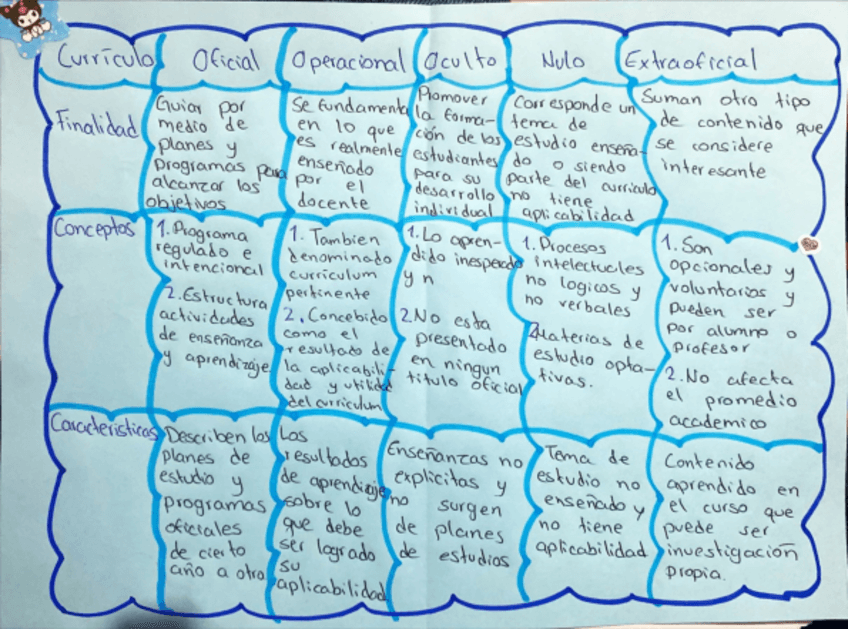 Currículo Oficial Operacional Oculto Nulo Extraoficial
Finalidad
Guiar por
medio de
planes y
programas para
alcanzar los
objetivos
Se fundamenta
en lo que
es realmente
enseñado
por el
docente
Promover
la forma-
ción de los
estudiantes
para su
desarrollo
individual
Corresponde un
tema de
estudio enseña-
do o siendo
parte del curriculo
no tiene
aplicabilidad
Suman otro tipo
de contenido que
se considere
interesante
Conceptos
1. Programa
regulado e
intencional
2. Estructura
actividades
de enseñanza
y aprendizaje
1. Tambien
denominado
curriculum
pertinente
2. Concebido
como el
resultado de
la aplicabili-
dad y utilidad
del curriculum
1. Lo apren-
dido inesperado
y n
2. No esta
presentado
en ningun
titulo oficial
1. Procesos
intelectuales
no logicos y
no verbales
2. Materias de
estudio opta-
tivas.
1. Son
opcionales y
voluntarios y
pueden ser
por alumno o
profesor
2. No afecta
el promedio
academico
Caracteristicas
Describen los
planes de
estudio y
programas
oficiales
de cierto
año a otro
Los
resultados
de aprendizaje
sobre lo
que debe
ser logrado
su
aplicabilidad
Enseñanzas no
explicitas y
no surgen
de planes
de estudios
Tema de
estudio no
enseñado y
no tiene
aplicabilidad
Contenido
aprendido en
el curso que
puede ser
investigación
propia.